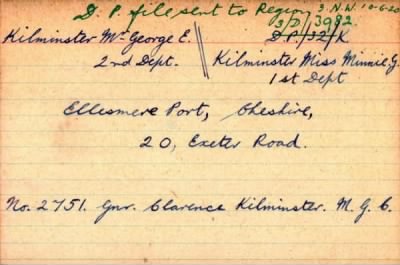 D. P. file sent to Region 3. N.W. 10-6-20
3/D/3982.
Kilminster Mr George E. // D.P./32/K
2nd Dept. Kilminster Miss Minnie G.
1st Dept
Ellesmere Port, Cheshire,
20, Exeter Road.
No. 2751. Gnr. Clarence Kilminster. M. G. C.